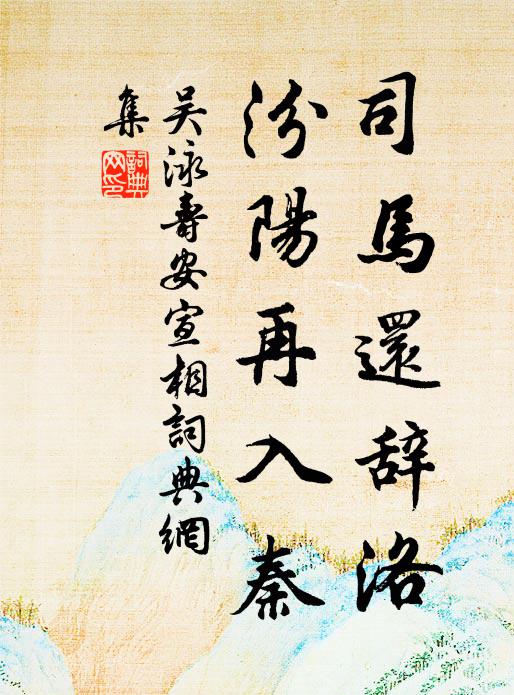 司馬還辞洛
汾陽再入秦
吴泳壽安宣相詞典網
集
詞典
网印